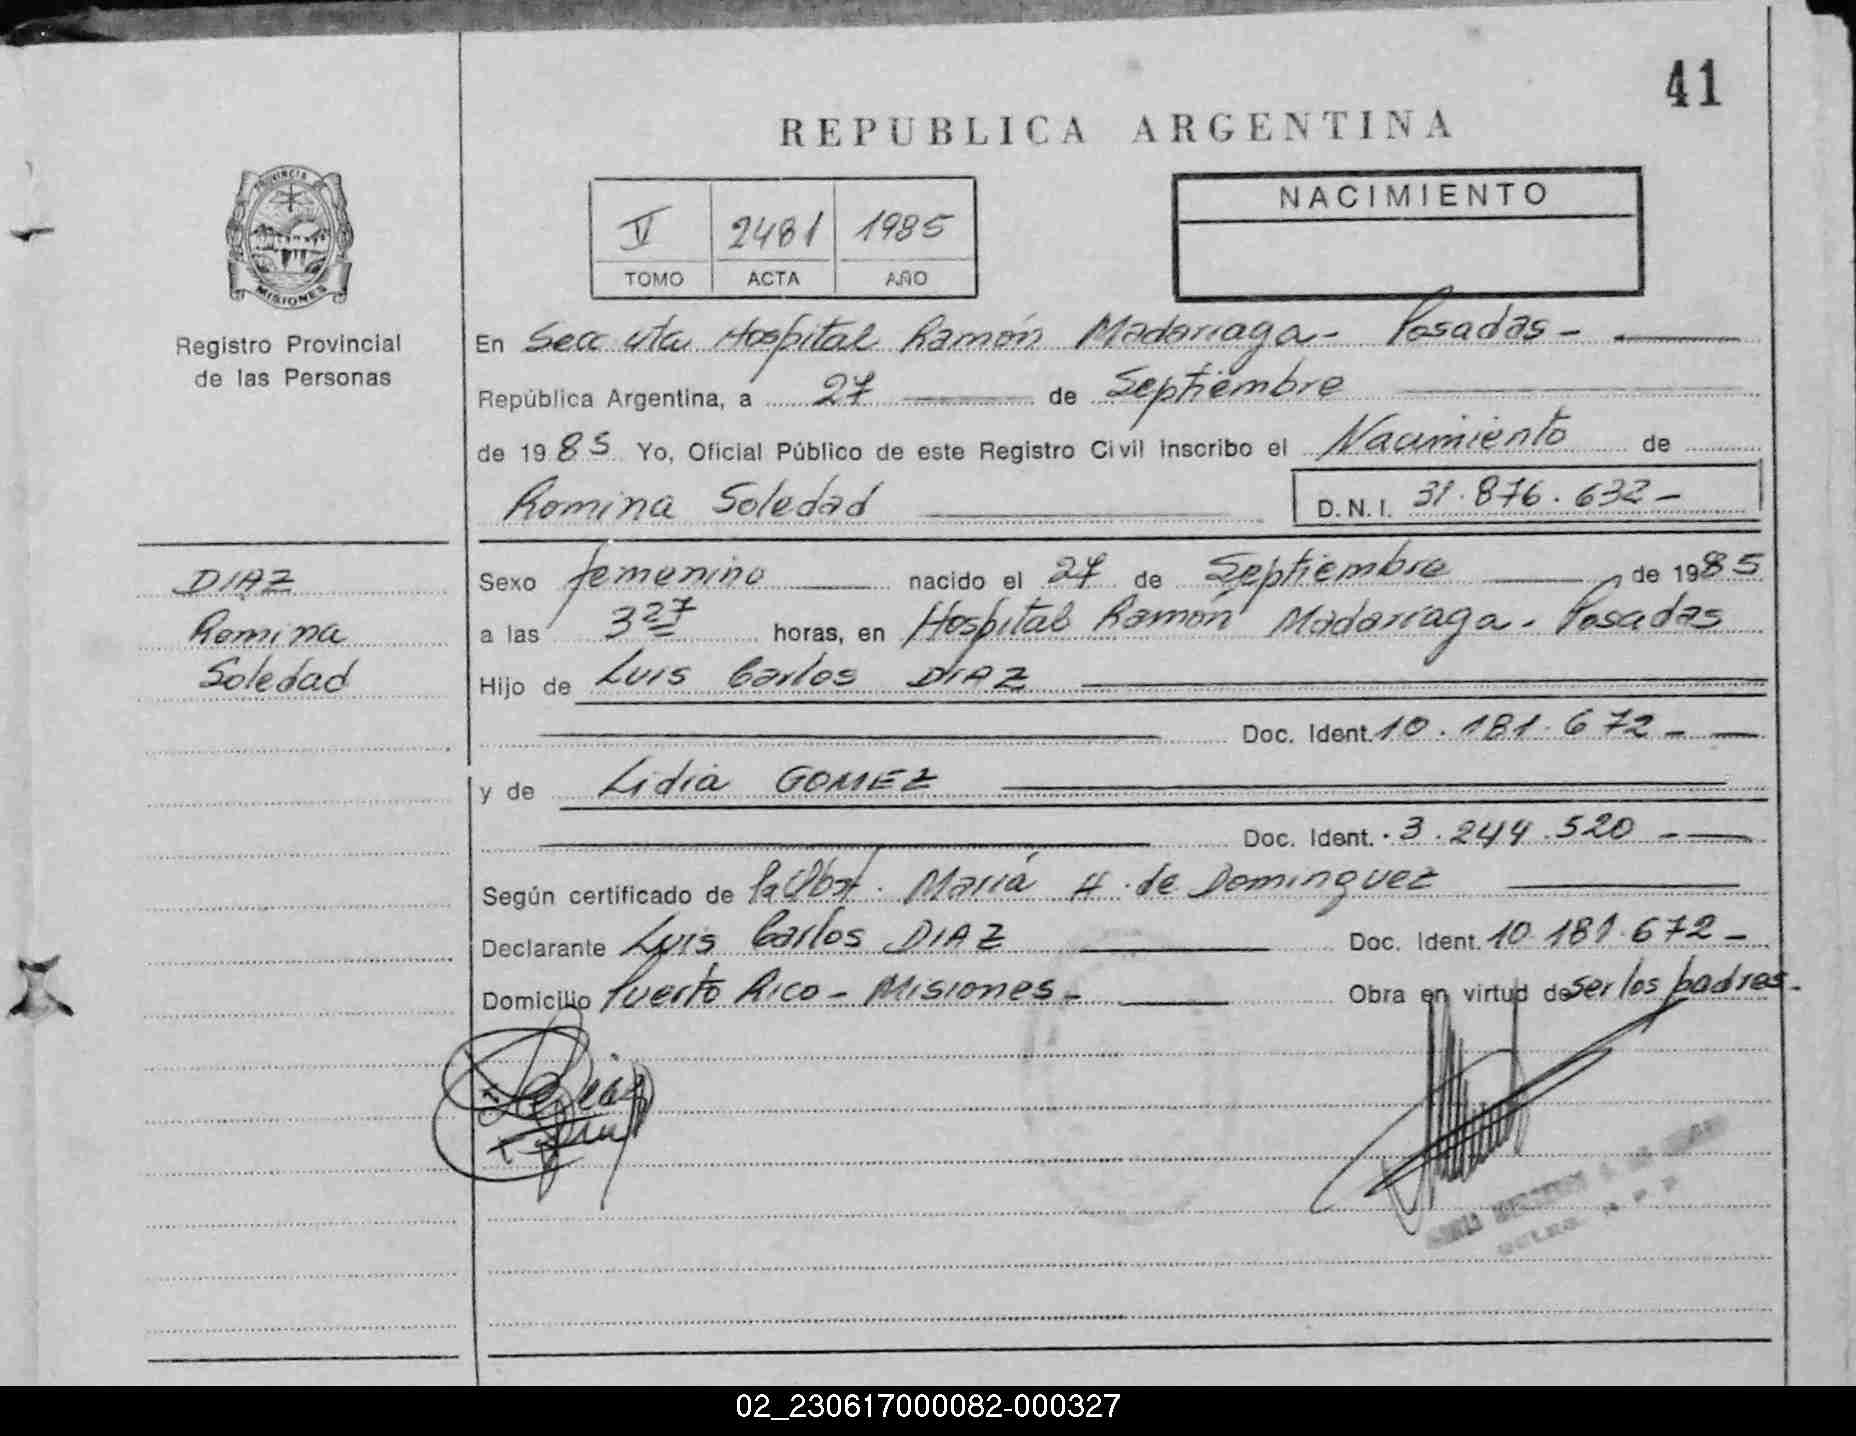 41
REPUBLICA ARGENTINA
PROVINCIA DE
MISIONES
Registro Provincial
de las Personas
V 2481 1985
TOMO ACTA AÑO
NACIMIENTO
En Secc. uta Hospital Ramón Madariaga - Posadas -
República Argentina, a 27 de Septiembre
de 1985 Yo, Oficial Público de este Registro Civil Inscribo el Nacimiento de
Romina Soledad D.N.I. 31.876.632 -
DIAZ
Romina
Soledad
Sexo femenino nacido el 27 de Septiembre de 1985
a las 3 27 horas, en Hospital Ramón Madariaga - Posadas
Hijo de Luis Carlos DIAZ
Doc. Ident. 10.181.672 -
y de Lidia GOMEZ
Doc. Ident. 3.244.520 -
Según certificado de la Obst. María H. de Dominguez
Declarante Luis Carlos DIAZ Doc. Ident. 10.181.672 -
Domicilio Puerto Rico - Misiones - Obra en virtud de ser los padres -
02_230617000082-000327